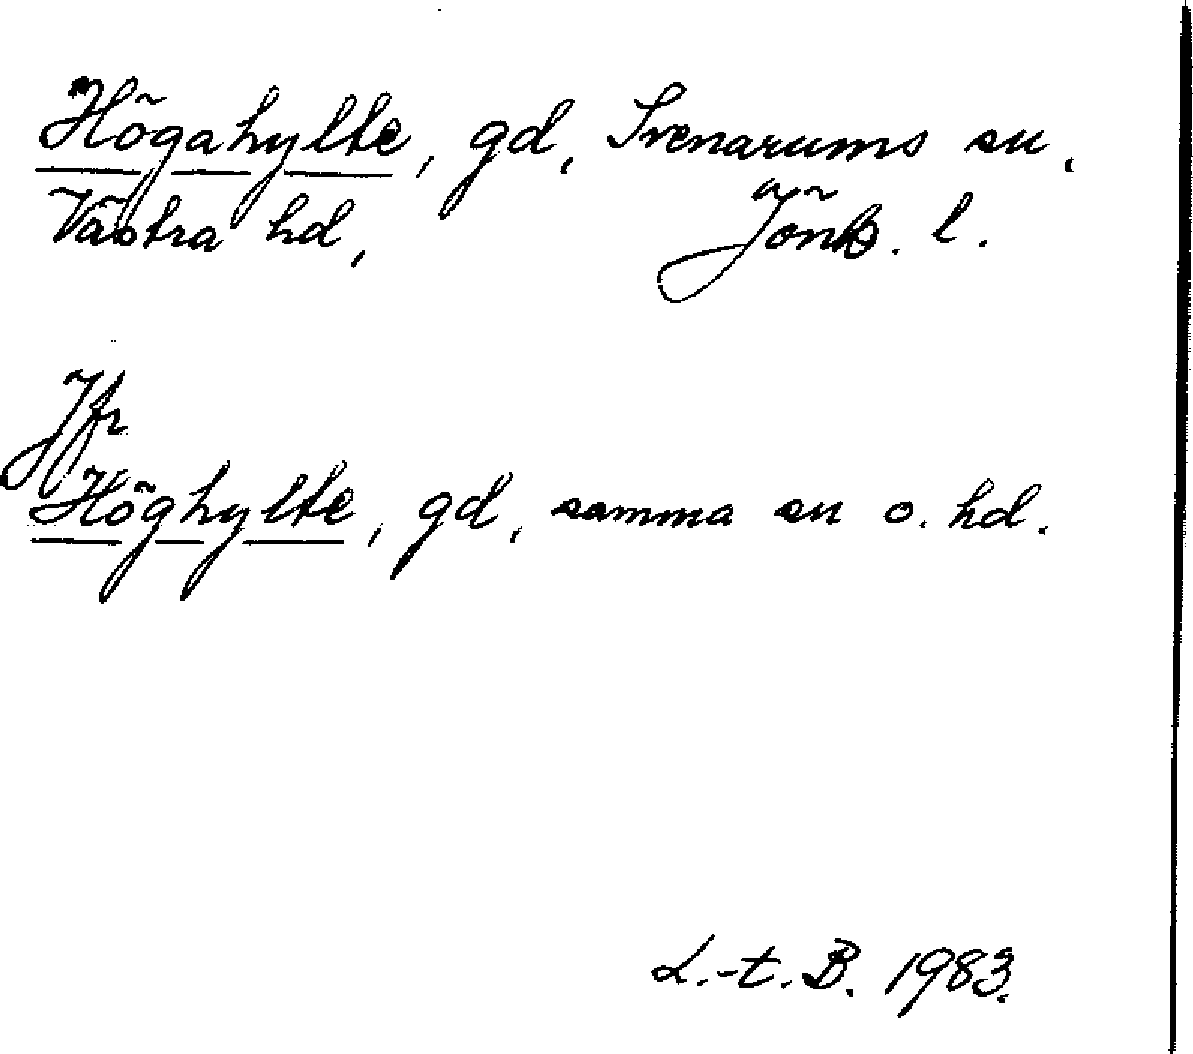 Högahylte, gd, Svenarums sn.
Västra hd, Jönk. l.
Jfr
Höghylte, gd, samma sn o. hd.
L.-t. B. 1983.